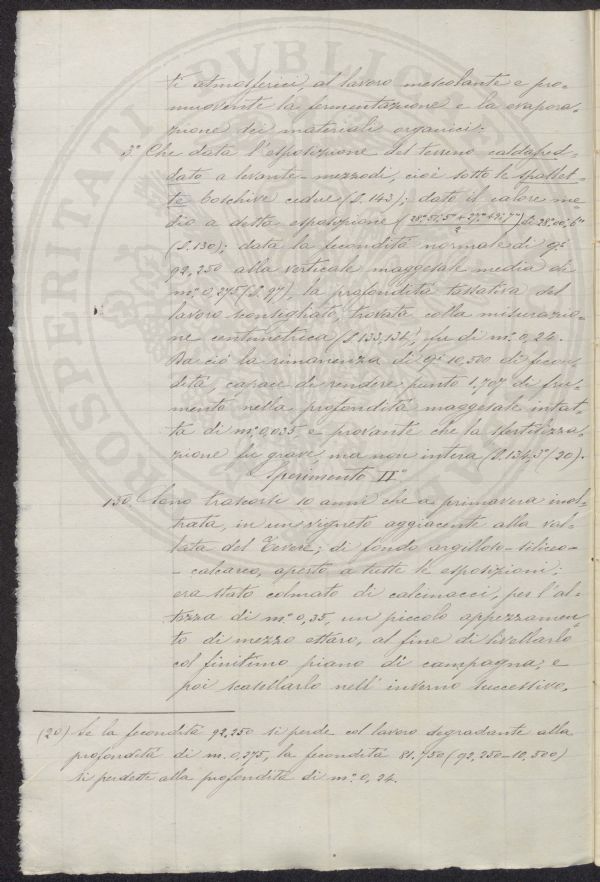 ti atmosferici, al lavoro mescolante e pro-
muovente la fermentazione e la evapora-
zione dei materiali organici.
3.° Che data l'esposizione del terreno
dato a levante-mezzodì, cioè sotto le spallet-
te boschive cedue (§.143); dato il calore me-
dio a detta esposizione
(§.130); data la fecondità normale di gi
92,250 alla verticale maggesale media di
m.° 0,275 (§.97), la profondità tassativa del
lavoro sconsigliato, trovata colla misurazio-
ne centimetrica (§.133,134), fu di m.° 0,24.
Da ciò la rimanenza di gi 10,500 di fecon-
dità, capace di rendere punto 1,707 di fru-
mento nella profondità maggesale intat-
ta di m.° 0,035 e provante che la sfertilizza-
zione fu grave, ma non intera (§.134,3°) (20).
Sperimento II°
150. Sono trascorsi 10 anni che a primavera inol-
trata, in un vigneto aggiacente alla val-
lata del Tevere; di fondo argilloso-siliceo-
-calcareo, aperto a tutte le esposizioni;
era stato colmato di calcinacci, per l'al-
tezza di m.° 0,35, un piccolo appezzamen-
to di mezzo ettaro, al fine di livellarlo
col finitimo piano di campagna; e
poi scatellarlo nell'inverno successivo.
(20) Se la fecondità 92,250 si perde col lavoro degradante alla
profondità di m. 0,275, la fecondità 81.750 (92,250-10,500)
si perdette alla profondità di m.° 0,24.
PROSPERITATI PVBLICAE